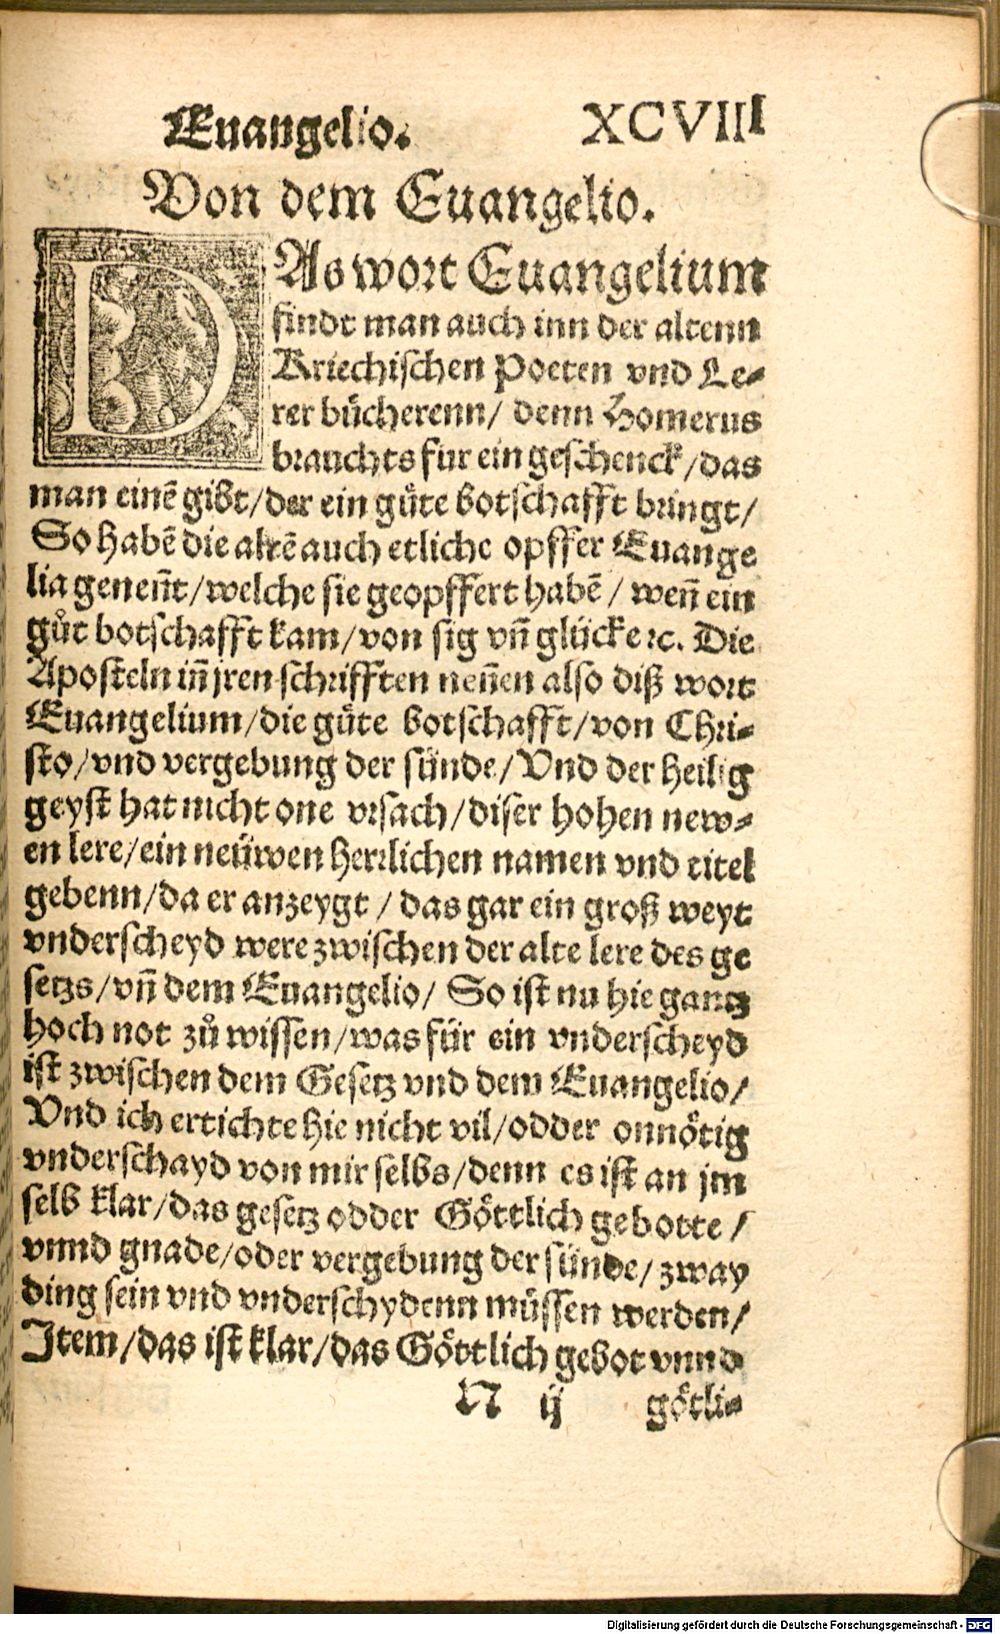 Euangelio. XCVIII
Von dem Euangelio.
DAs wort Euangelium
findt man auch inn der altenn
Kriechischen Poeten vnd Le-
rer bücherenn/ denn Homerus
brauchts für ein geschenck/das
man einẽ gibt/der ein gůte botschafft bringt/
So habẽ die altẽ auch etliche opffer Euange
lia genen̄t/welche sie geopffert habẽ/ wen̄ ein
gůt botschafft kam/von sig vn̄ glück ⁊c. Die
Aposteln in̄ jren schrifften nen̄en also diß wort
Euangelium/die gůte botschafft/von Chri-
sto/vnd vergebung der sünde/Vnd der heilig
geyst hat nicht one vrsach/diser hohen new-
en lere/ein neüwen herrlichen namen vnd titel
gebenn/da er anzeygt/ das gar ein groß weyt
vnderscheyd were zwischen der alte lere des ge
setzs/vn̄ dem Euangelio/ So ist nu hie gantz
hoch not zů wissen/was für ein vnderscheyd
ist zwischen dem Gesetz vnd dem Euangelio/
Vnd ich ertichte hie nicht vil/odder onnötig
vnderschayd von mir selbs/denn es ist an jm
selb klar/das gesetz odder Göttlich gebotte/
vnnd gnade/oder vergebung der sünde/ zway
ding sein vnd vnderschydenn müssen werden/
Item/das ist klar/das Göttlich gebot vnnd
N ij götli-
Digitalisierung gefördert durch die Deutsche Forschungsgemeinschaft - DFG